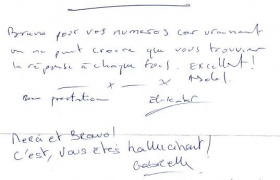 Bravo pour vos numeros car vraiment
on ne peut croire que vous trouviez
la réponse à chaque fois. Excellent!
Bon prestation
Merci et Bravo!
C'est, vous êtes hallucinant!
Gabrielle